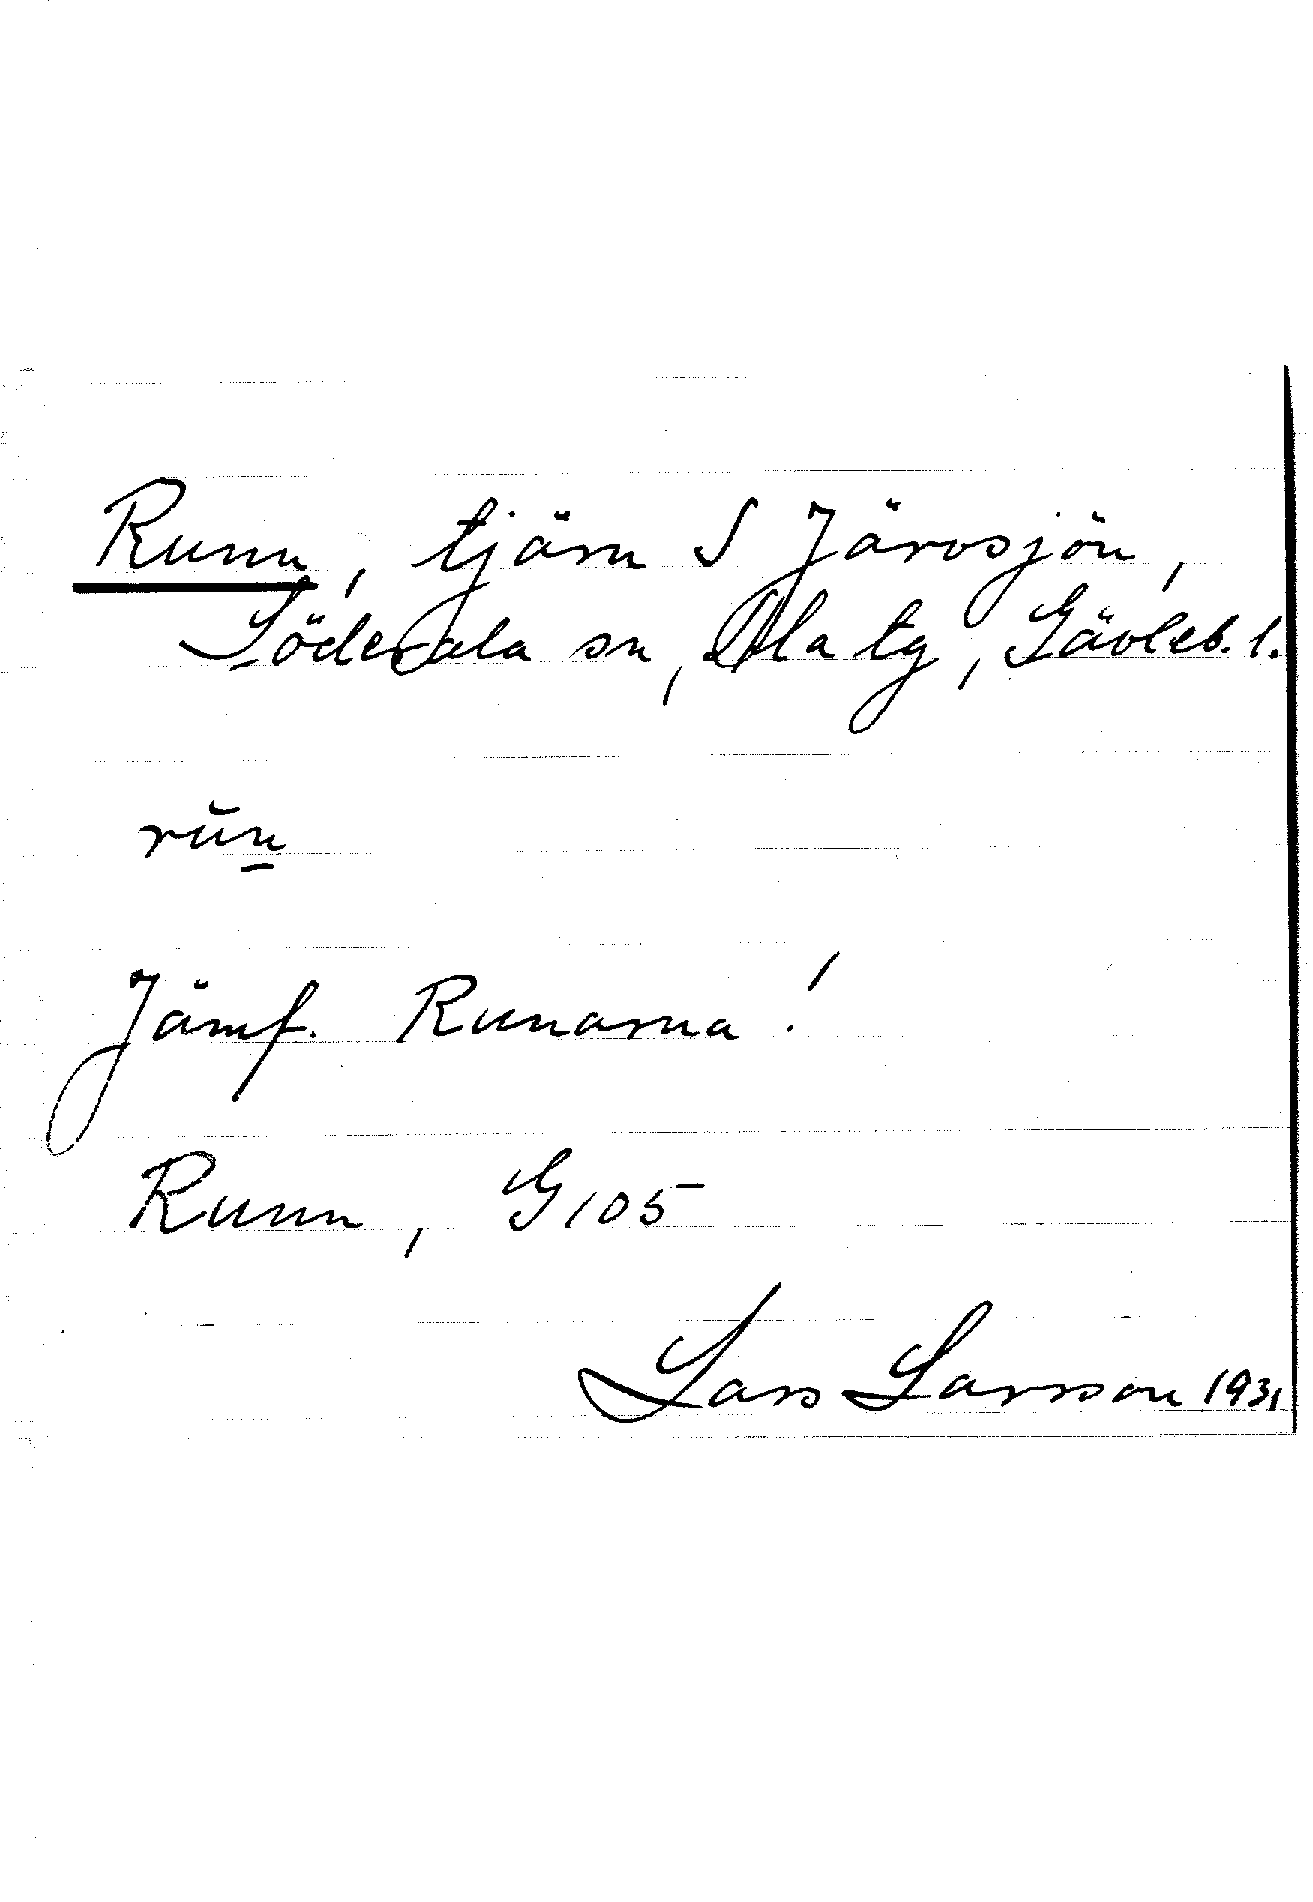 Runn, tjärn S Järvsjön,
Söderala sn, Ala tg, Gävleb. l.
rŭn̲
Jämf. Runarna!
Runn, G105
Lars Larsson 1931